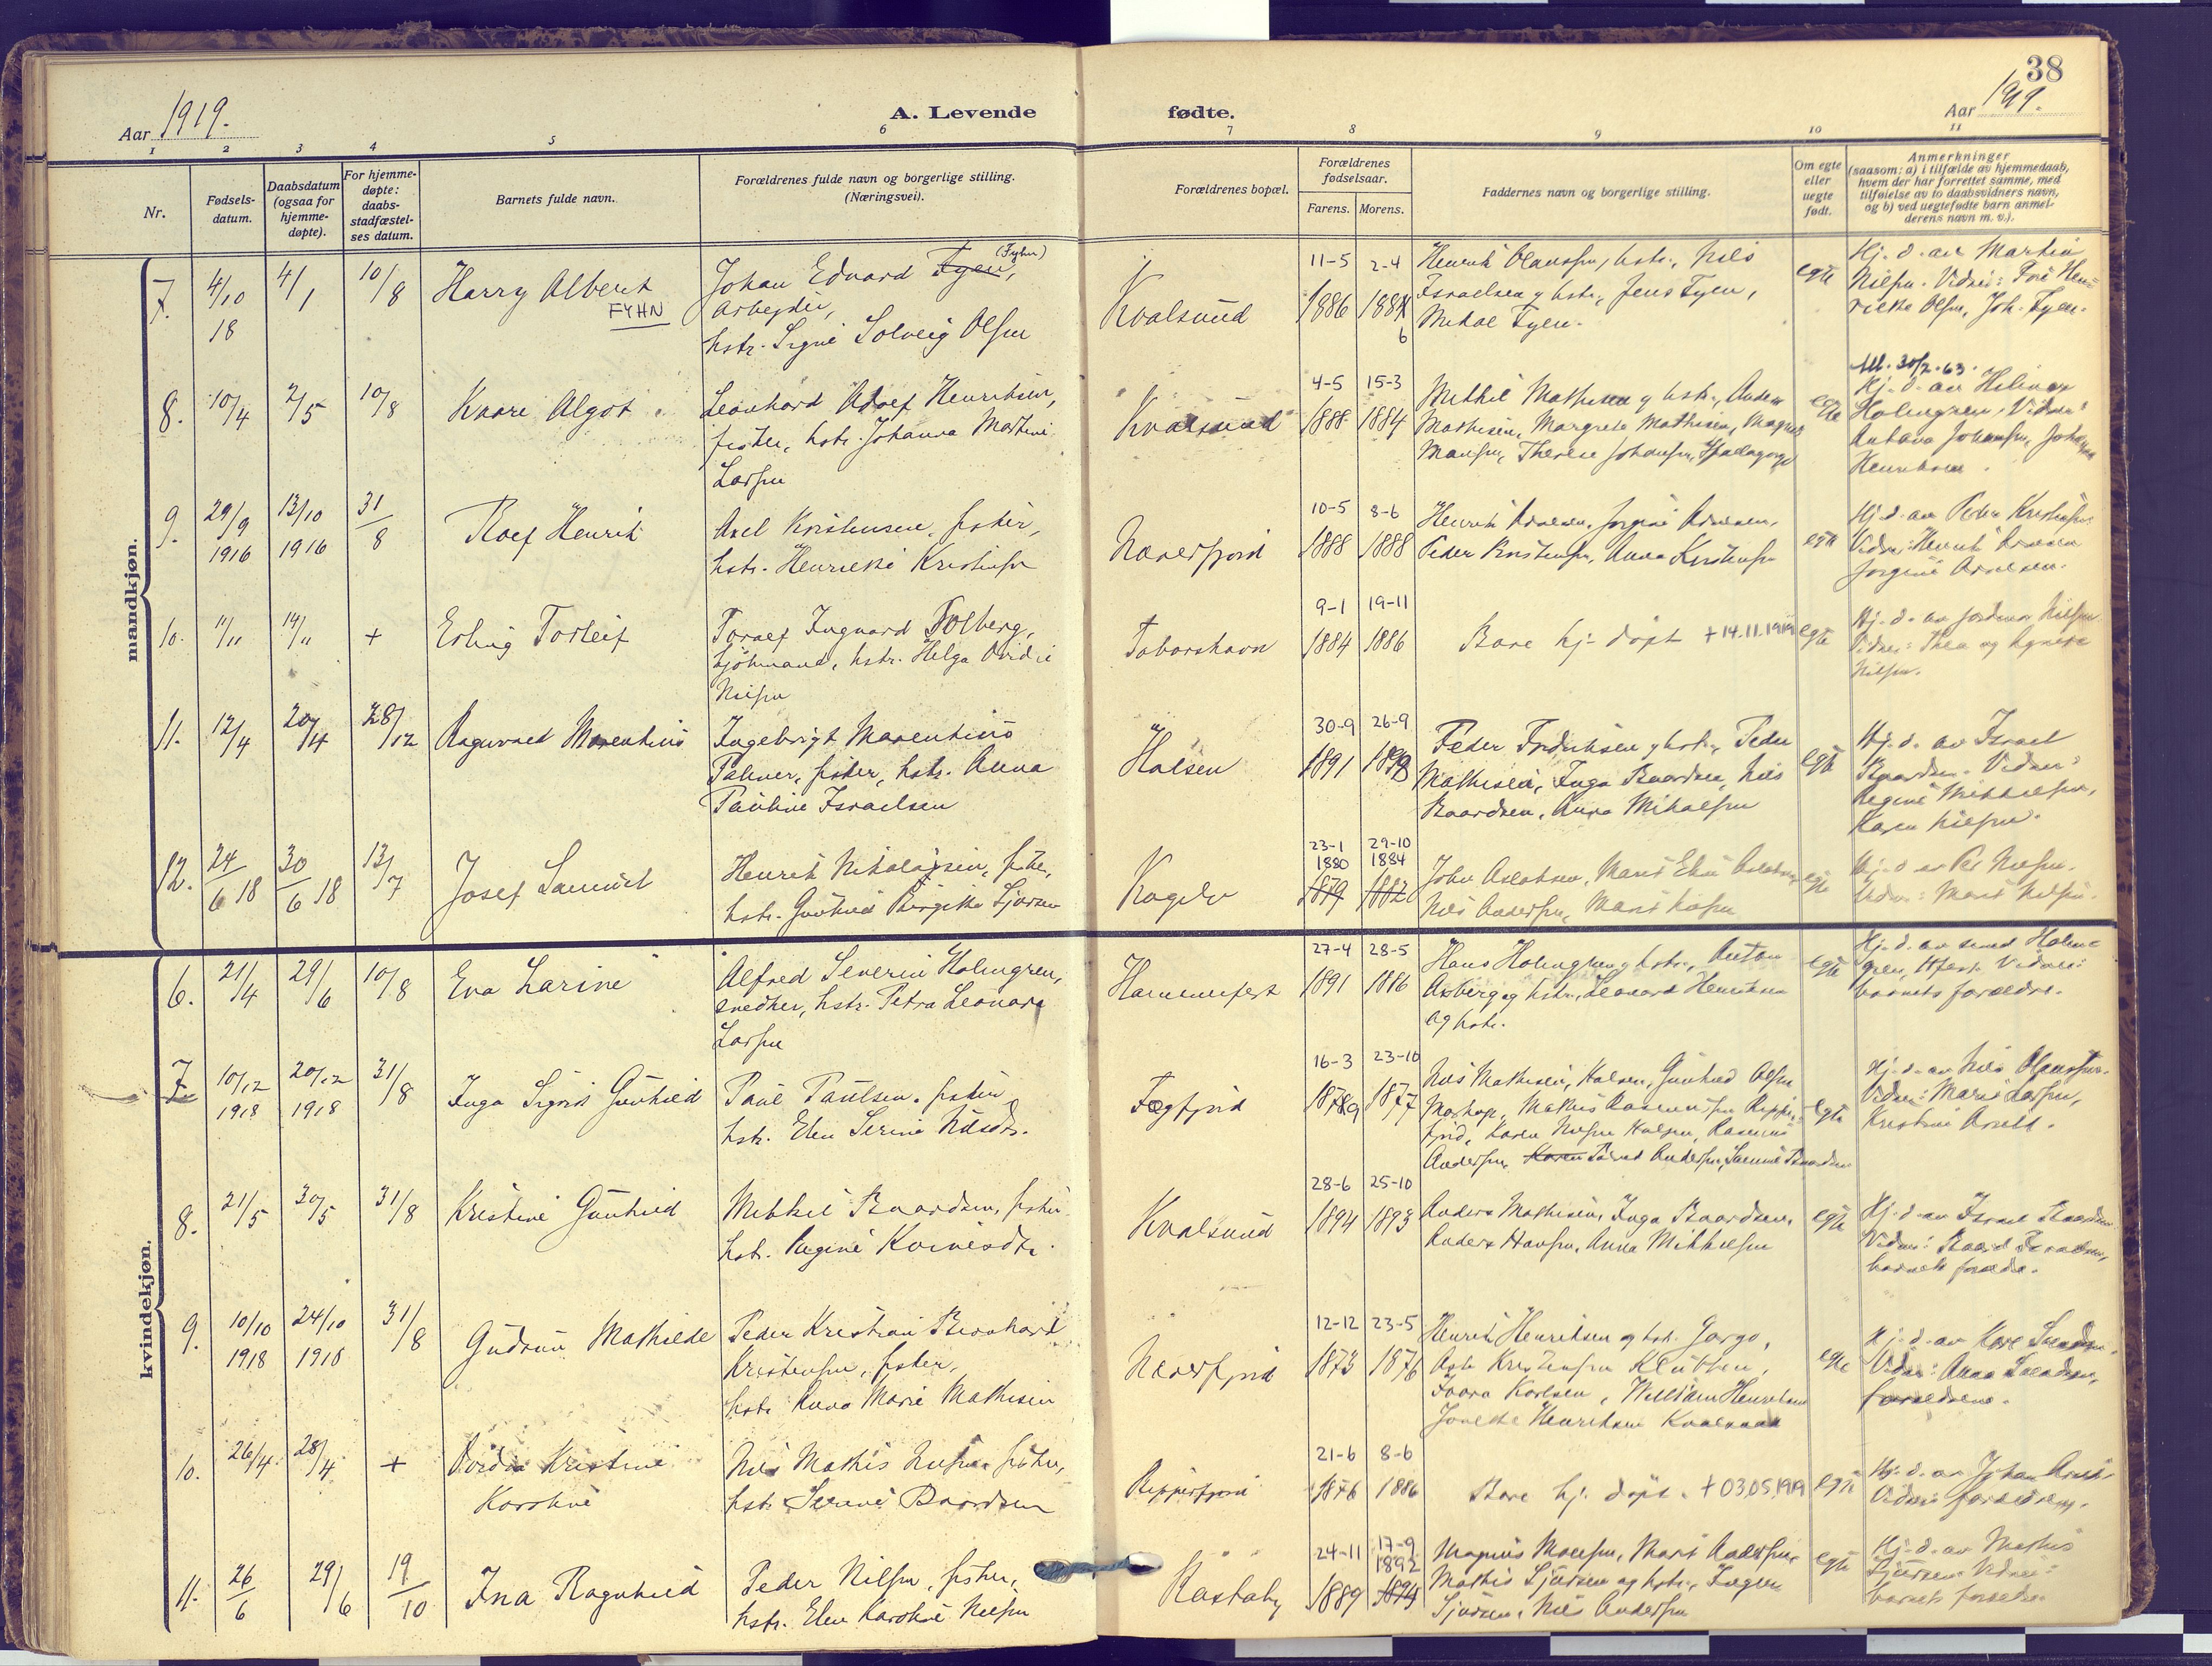 38
Aar 1919.
A. Levende
fødte.
Aar 1919.
1 2 3 4 5 6 7 8 9 10 11
Nr.
Fødsels-
datum.
Daabsdatum
(ogsaa for
hjemme-
døpte).
For hjemme-
døpte:
daabs-
stadfæstel-
ses datum.
Barnets fulde navn.
Forældrenes fulde navn og borgerlige stilling.
(Næringsvei).
Forældrenes bopæl.
Forældrenes
fødselsaar.
Farens. Morens.
Faddernes navn og borgerlige stilling.
Om egte
eller
uegte
født.
Anmerkninger
(saasom: a) i tilfælde av hjemmedaab,
hvem der har forrettet samme, med
tilføielse av to daabsvidners navn,
og b) ved uegtefødte barn anmel-
derens navn m. v.).
mandkjøn.
7. 4/10 18 4/1 10/8
Harry Albert
FYHN
Johan Edvard Fyen, (Fyhn)
Arbeyder,
hstr. Signe Solveig Olsen
Kvalsund
11-5 2-4
1886 1884
6
Henrik Olaussen, hstr., Nils
Israelsen g hstr, Jens Fyen,
Mikal Fyen.
egte
Hj. d. av Martin
Nilsen. Vidner: Fru Hen-
rikke Olsen, Joh. Fyen.
8. 10/4 2/5 10/8
Kaare Algot
Leonhard Adolf Henriksen,
fisker, hstr. Johanna Martine
Larsen
Kvalsund
4-5 15-3
1888 1884
Mikkel Mathisen g hstr., Anders
Mathisen, Margrete Mathisen, Magnus
Hansen, Therese Johansen,
egte
Utl. 30/2.63.
Hj. d. av Hilmar
Holmgren. Vidner:
Antona Johansen, Johanna
Henriksen.
9. 29/9 1916 13/10 1916 31/8
Rolf Henrik
Axel Kristensen, fisker,
hstr. Henrikke Kristensen
Næverfjord
10-5 8-6
1888 1888
Henrik Arnesen, Jorgine Arnesen,
Peder Kristensen, Anna Kristensen
egte
Hj. d. av Peder Kristensen
Vidner: Henrik Arnesen
Jorgine Arnesen.
10. 11/11 14/11 +
Erling Torleif
Toralf Ingvard Tolberg,
Sjömand, hstr. Helga Ovidie
Nilsen
Taborshavn
9-1 19-11
1884 1886
Bare hj. döpt +14.11.1919
egte
Hj. d. av Jordmor Nilsen
Vidner: Thea og Agnete
Nilsen.
11. 12/4 20/4 28/12
Ragnvald Marentius
Ingebrigt Marentius
Palmer, fisker, hstr. Anna
Pauline Israelsen
Halsen
30-9 26-9
1891 1898
Peder Fredriksen g hstr., Peder
Mathisen, Inga Baardsen, Nils
Baardsen, Anna Mikalsen
egte
Hj. d. av Israel
Baardsen. Vidner:
Regine Mikkelsen,
Karen Nilsen.
12. 24/6 18 30/6 18 13/7
Josef Samuel
Henrik Nikolaisen, fisker,
hstr. Gunhild Birgitte Sjursen
23-1 29-10
1880 1884
1879 1882
John Aslaksen, Marit Elen Aslaksen
Nils Andersen, Marit
egte
Hj. d. av Per Nilsen.
Vidner: Marit Nilsen.
kvindekjøn.
6. 21/4 29/6 10/8
Eva Larine
Alfred Severin Holmgren,
snedker, hstr. Petra Leonora
Larsen
Hammerfest
27-4 28-5
1891 1886
Hans Holmgren g hstr., Anton
Axberg og hstr., Leonard Henriksen
og hstr.
egte
Hj. d. av smed Holm-
gren, Hfest. Vidner:
barnets forældre.
7. 10/12 1918 20/12 1918 31/8
Inga Sigrid Gunhild
Paul Paulsen, fisker,
hstr. Elen Serine Nilsdtr.
Fægfjord
16-3 23-10
18789 1877
Nils Mathisen, Halsen, Gunhild Olsen
Mathis Rasmussen Ripper-
fjord, Karen Nilsen Halsen, Rasmus
Andersen, Karen
egte
Hj. d. av Nils Olaussen.
Vidner: Marie Larsen,
8. 21/5 30/5 31/8
Kristine Gunhild
Mikkel Baardsen, fisker
hstr. Regine
Kvalsund
28-6 25-10
1894 1893
Anders Mathisen, Inga Baardsen,
Anders Hansen, Anna Mikkelsen
egte
Hj. d. av Israel Baardsen
Vidner: Baard Israelsen,
barnets forældre.
9. 10/10 1918 24/10 1918 31/8
Gudrun Mathilde
Peder Kristian Bernhard
Kristensen, fisker,
hstr. Anna Marie Mathisen
Næverfjord
12-12 23-5
1873 1876
Henrik Henriksen og hstr. Gargo,
Kristensen Klubben,
Karlsen, William Henriksen
Henriksen Kvalsund
egte
Hj. d. av
Vidner: Anna
forældrene.
10. 26/4 28/4 +
Ovidia Kristine
Karoline
Nils Mathis Nilsen fisker,
hstr. Serine Baardsen
Ripperfjord
21-6 8-6
1876 1886
Bare hj. döpt. +03.05.1919
egte
Hj. d. av Johan
Vidner forældrene.
11. 26/6 29/6 19/10
Ina Ragnhild
Peder Nilsen, fisker,
hstr. Elen Karoline Nilsen
24-11 17-9
1892
1889 1894
Magnus Marit Andersen,
Mathis Sjursen og hstr., Inger
Sjursen, Nils Andersen
egte
Hj. d. av Mathis
Sjursen. Vidner:
barnets forældre.